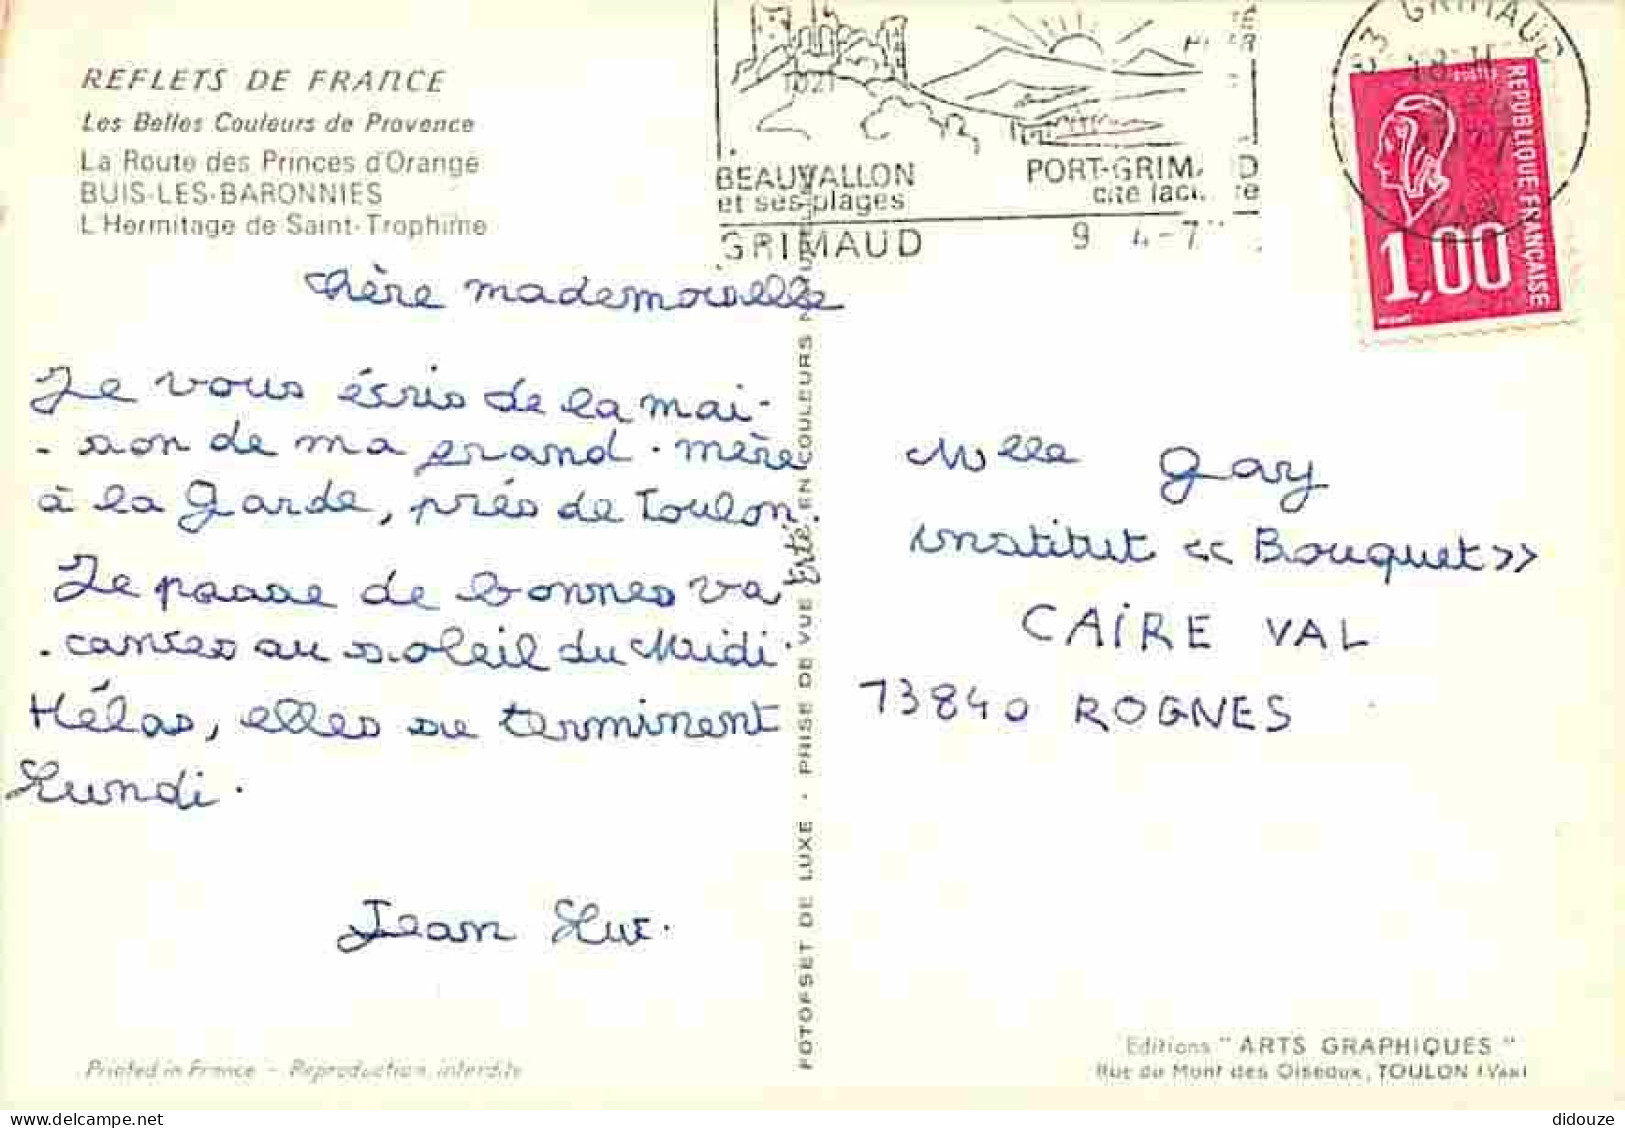 REFLETS DE FRANCE
Les Belles Couleurs de Provence
La Route des Princes d'Orange
BUIS-LES-BARONNIES
L'Hermitage de Saint-Trophime
1021
BEAUVALLON
et ses plages
PORT-GRIM
GRIMAUD
9 4-7
83 GRIMAUD
18 H
VAR
POSTES
REPUBLIQUE FRANÇAISE
1,00
chère mademoiselle
Je vous écris de la mai-
-son de ma grand-mère
à la Garde, près de Toulon.
Je passe de bonnes va
-cances au soleil du Midi.
Hélas, elles se terminent
Lundi.
Jean Luc.
Mlle Gay
institut « Bouquet »
CAIRE VAL
13840 ROGNES
FOTOFSET DE LUXE - PRISE DE VUE EN COULEURS
Printed in France - Reproduction interdite
Editions "ARTS GRAPHIQUES"
Rue du Mont des Oiseaux, TOULON (Var)
didouze